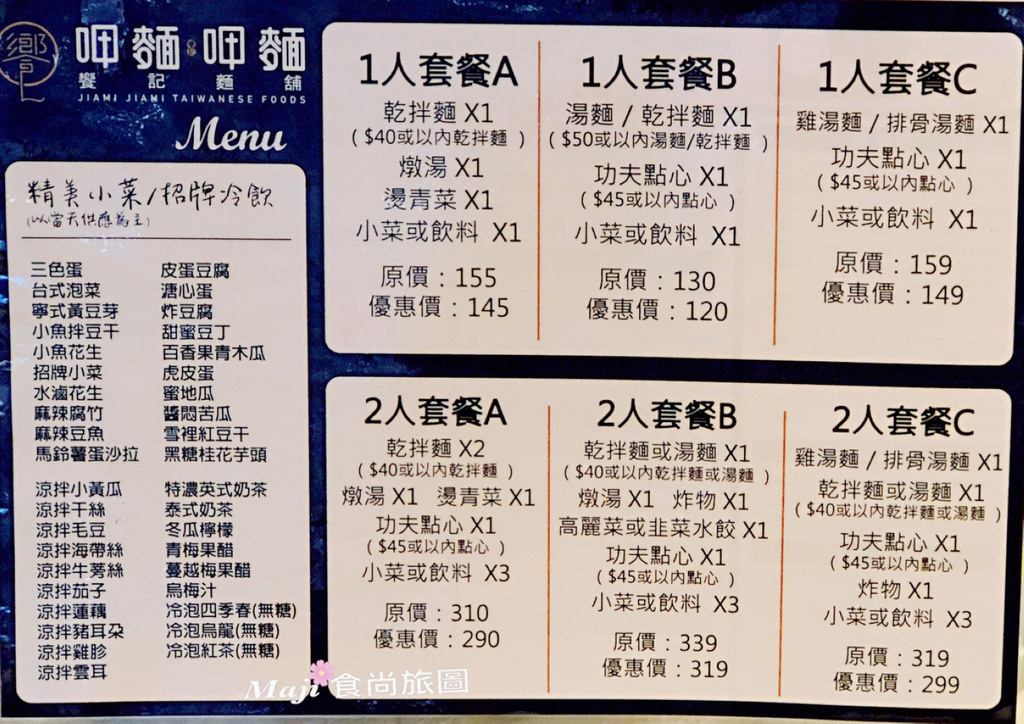 饗
呷麵·呷麵
饗記麵舖
JIAMI JIAMI TAIWANESE FOODS
Menu
精美小菜/招牌冷飲
(以當天供應為主)
三色蛋 皮蛋豆腐
台式泡菜 溏心蛋
寧式黃豆芽 炸豆腐
小魚拌豆干 甜蜜豆丁
小魚花生 百香果青木瓜
招牌小菜 虎皮蛋
水滷花生 蜜地瓜
麻辣腐竹 醬悶苦瓜
麻辣豆魚 雪裡紅豆干
馬鈴薯蛋沙拉 黑糖桂花芋頭
涼拌小黃瓜 特濃英式奶茶
涼拌干絲 泰式奶茶
涼拌毛豆 冬瓜檸檬
涼拌海帶絲 青梅果醋
涼拌牛蒡絲 蔓越梅果醋
涼拌茄子 烏梅汁
涼拌蓮藕 冷泡四季春(無糖)
涼拌豬耳朵 冷泡烏龍(無糖)
涼拌雞胗 冷泡紅茶(無糖)
涼拌雲耳
1人套餐A
乾拌麵 X1
( $40或以內乾拌麵 )
燉湯 X1
燙青菜 X1
小菜或飲料 X1
原價：155
優惠價：145
1人套餐B
湯麵 / 乾拌麵 X1
( $50或以內湯麵/乾拌麵 )
功夫點心 X1
( $45或以內點心 )
小菜或飲料 X1
原價：130
優惠價：120
1人套餐C
雞湯麵 / 排骨湯麵 X1
功夫點心 X1
( $45或以內點心 )
小菜或飲料 X1
原價：159
優惠價：149
2人套餐A
乾拌麵 X2
( $40或以內乾拌麵 )
燉湯 X1 燙青菜 X1
功夫點心 X1
( $45或以內點心 )
小菜或飲料 X3
原價：310
優惠價：290
2人套餐B
乾拌麵或湯麵 X1
( $40或以內乾拌麵或湯麵 )
燉湯 X1 炸物 X1
高麗菜或韭菜水餃 X1
功夫點心 X1
( $45或以內點心 )
小菜或飲料 X3
原價：339
優惠價：319
2人套餐C
雞湯麵 / 排骨湯麵 X1
乾拌麵或湯麵 X1
( $40或以內乾拌麵或湯麵 )
功夫點心 X1
( $45或以內點心 )
炸物 X1
小菜或飲料 X3
原價：319
優惠價：299
Maji 食尚旅圖